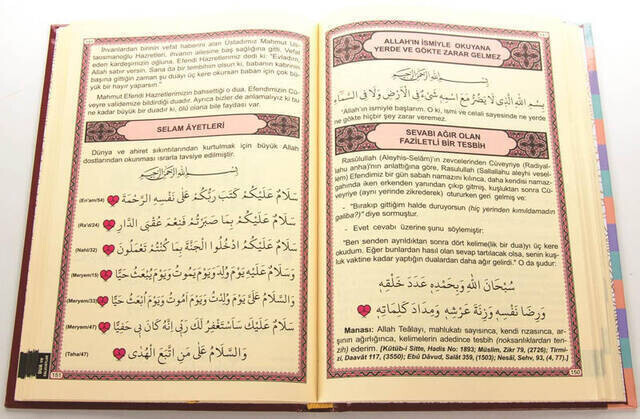 ALLAH'IN İSMİYLE OKUYANA
YERDE VE GÖKTE ZARAR GELMEZ
بِسْمِ اللهِ الَّذِي لَا يَضُرُّ مَعَ اسْمِهِ شَيْءٌ فِي الْأَرْضِ وَلَا فِي السَّمَاءِ
"Allah'ın ismiyle başlarım. O ki, ismi ve celali sayesinde ne yerde
ne gökte hiçbir şey zarar veremez.
SEVABI AĞIR OLAN
FAZİLETLİ BİR TESBİH
Rasûlullah (Aleyhis-Selâm)'ın zevcelerinden Cüveyriye (Radiyal-
lahu anha)'nın anlattığına göre, Rasulullah (Sallallahu aleyhi vesel-
lem) Efendimiz bir gün sabah namazını kılınca, daha kendisi namaz-
gahında iken erkenden yanından çıkıp gitmiş, kuşluktan sonra Cü-
veyriye (aynı yerinde zikrederek) otururken geri gelmiş ve:
- "Bıraktığım gittiğim halde duruyorsun (hiç yerinden kımıldamadın
galiba?)" diye sormuştur.
- Evet cevabı üzerine şunu söylemiştir:
"Ben senden ayrıldıktan sonra dört kelime(lik bir dua)yı üç kere
okudum. Eğer bunlardan hasıl olan sevap tartılacak olsa, senin kuş-
luk vaktine kadar yaptığın dualardan daha ağır gelirdi." O da şudur:
سُبْحَانَ اللهِ وَبِحَمْدِهِ عَدَدَ خَلْقِهِ
وَرِضَا نَفْسِهِ وَزِنَةَ عَرْشِهِ وَمِدَادَ كَلِمَاتِهِ
Manası: Allah Teâlayı, mahlukatı sayısınca, kendi rızasınca, ar-
şının ağırlığınca, kelimelerin adedince tesbih (noksanlıklardan ten-
zih) ederim. [Kütüb-i Sitte, Hadis No: 1893; Müslim, Zikr 79, (2726); Tirmi-
zi, Daavât 117, (3550); Ebû Dâvud, Salât 359, (1503); Nesâî, Sehv, 93, (4, 77).]
150
İhvanlardan birinin vefat haberini alan Üstadımız Mahmut Us-
taosmanoğlu Hazretleri, ihvanın ailesine baş sağlığına gitti. Vefat
eden kardeşimizin oğluna, Efendi Hazretlerimiz dedi ki: "Evladım,
Allah sabır versin. Sana da bir tembihin olsun ki, babanın kabrinin
başına gittiğin zaman şu duayı üç kere okursan baban için çok bü-
yük bir hayır yaparsın."
Mahmut Efendi Hazretlerimizin bahsettiği o dua, Efendimizin Cü-
veyre validemize bildirdiği duadır. Ayrıca bizler de anlamalıyız ki bu
ne kadar büyük bir duadır ki, ölü olana bile faydası var.
SELAM ÂYETLERİ
Dünya ve ahiret sıkıntılarından kurtulmak için büyük Allah
dostlarından okunması ısrarla tavsiye edilmiştir.
(En'am/54) سَلَامٌ عَلَيْكُمْ كَتَبَ رَبُّكُمْ عَلَى نَفْسِهِ الرَّحْمَةَ
(Ra'd/24) سَلَامٌ عَلَيْكُمْ بِمَا صَبَرْتُمْ فَنِعْمَ عُقْبَى الدَّارِ
(Nahl/32) سَلَامٌ عَلَيْكُمُ ادْخُلُوا الْجَنَّةَ بِمَا كُنْتُمْ تَعْمَلُونَ
(Meryem/15) وَسَلَامٌ عَلَيْهِ يَوْمَ وُلِدَ وَيَوْمَ يَمُوتُ وَيَوْمَ يُبْعَثُ حَيًّا
(Meryem/33) وَالسَّلَامُ عَلَيَّ يَوْمَ وُلِدْتُ وَيَوْمَ أَمُوتُ وَيَوْمَ أُبْعَثُ حَيًّا
(Meryem/47) سَلَامٌ عَلَيْكَ سَأَسْتَغْفِرُ لَكَ رَبِّي إِنَّهُ كَانَ بِي حَفِيًّا
(Taha/47) وَالسَّلَامُ عَلَى مَنِ اتَّبَعَ الْهُدَى
151